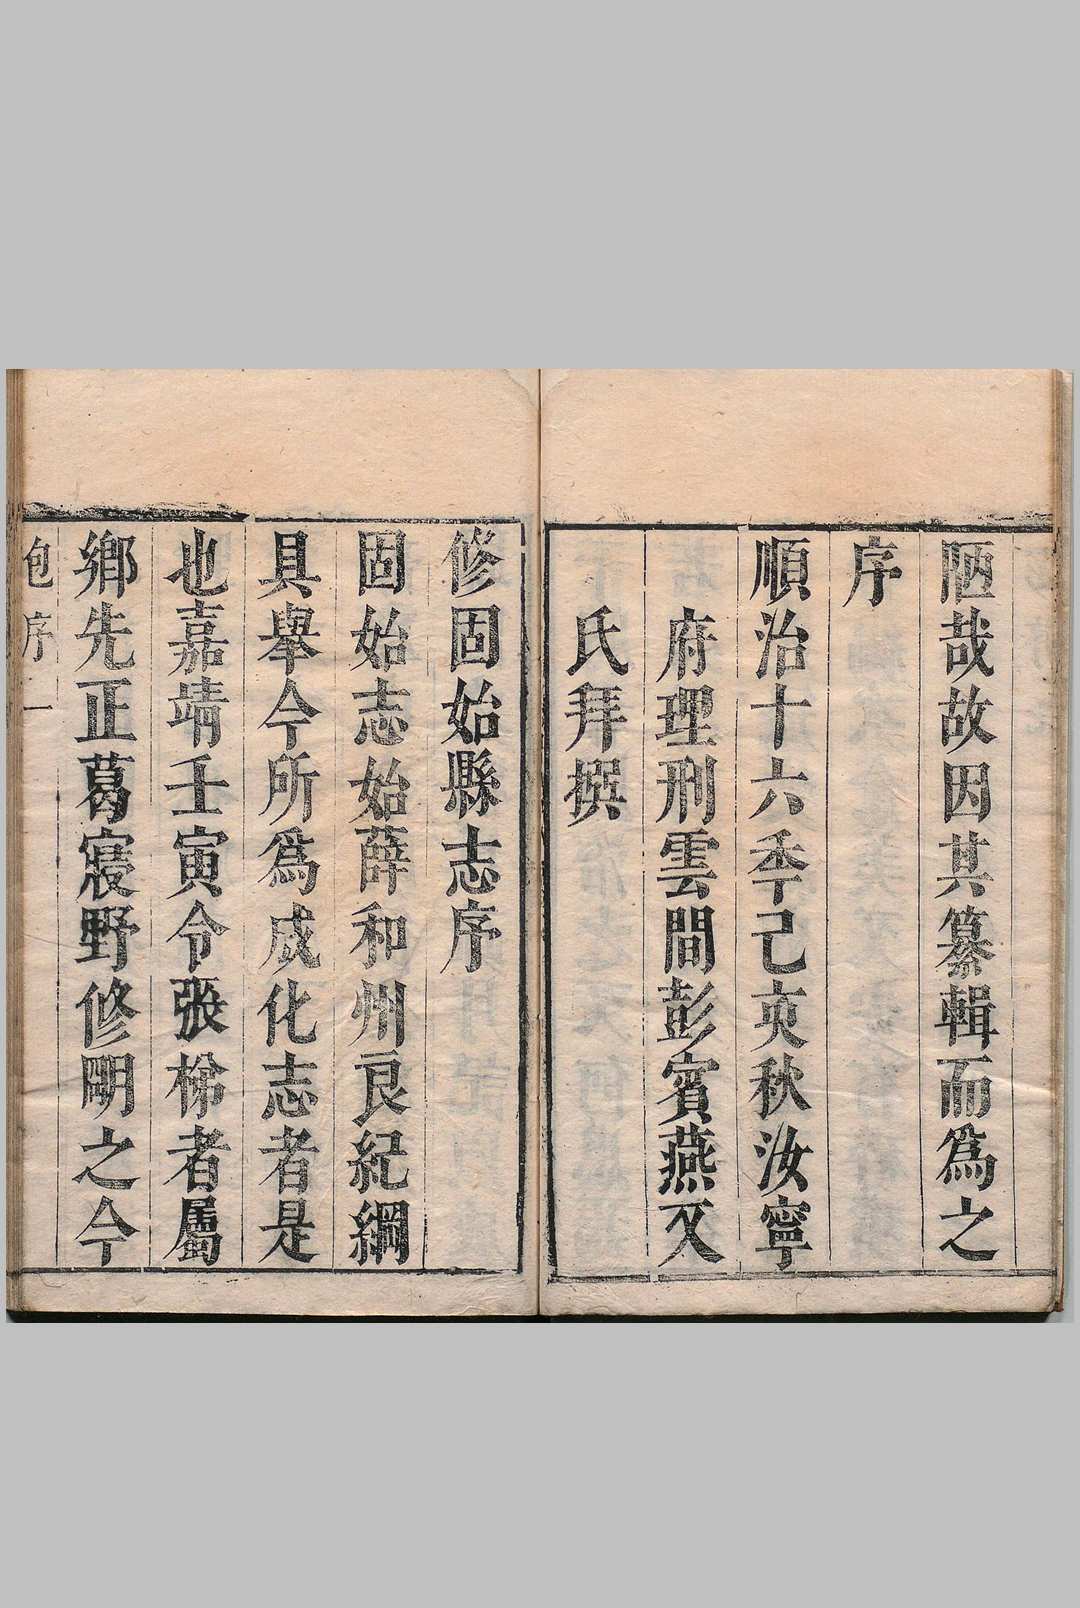 陋哉故因其纂輯而爲之
序
順治十六秊己亥秋汝寧
府理刑雲間彭賓燕又
氏拜撰
修固始縣志序
固始志始薛和州良紀綱
具舉今所爲成化志者是
也嘉靖壬寅令張梯者屬
鄉先正葛寖野修明之今
包序 一